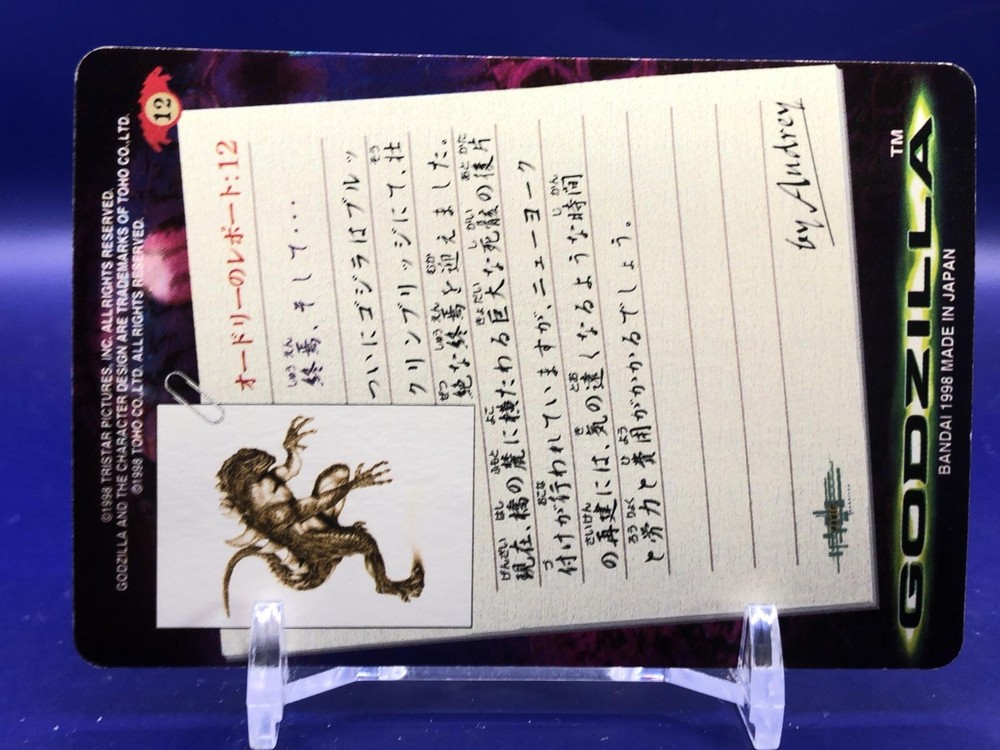 12
©1998 TRISTAR PICTURES, INC. ALL RIGHTS RESERVED.
GODZILLA AND THE CHARACTER DESIGN ARE TRADEMARKS OF TOHO CO.,LTD.
©1998 TOHO CO.,LTD. ALL RIGHTS RESERVED.
オードリーのレポート:12
終焉、そして・・・
ついにゴジラはブルッ
クリンブリッジにて、壮
絶な終焉を迎えました。
現在、橋の麓に横たわる巨大な死骸の後片
付けが行われていますが、ニューヨーク
の再建には、気の遠くなるような時間
と労力と費用がかかるでしょう。
by Audrey
GODZILLA TM
BANDAI 1998 MADE IN JAPAN